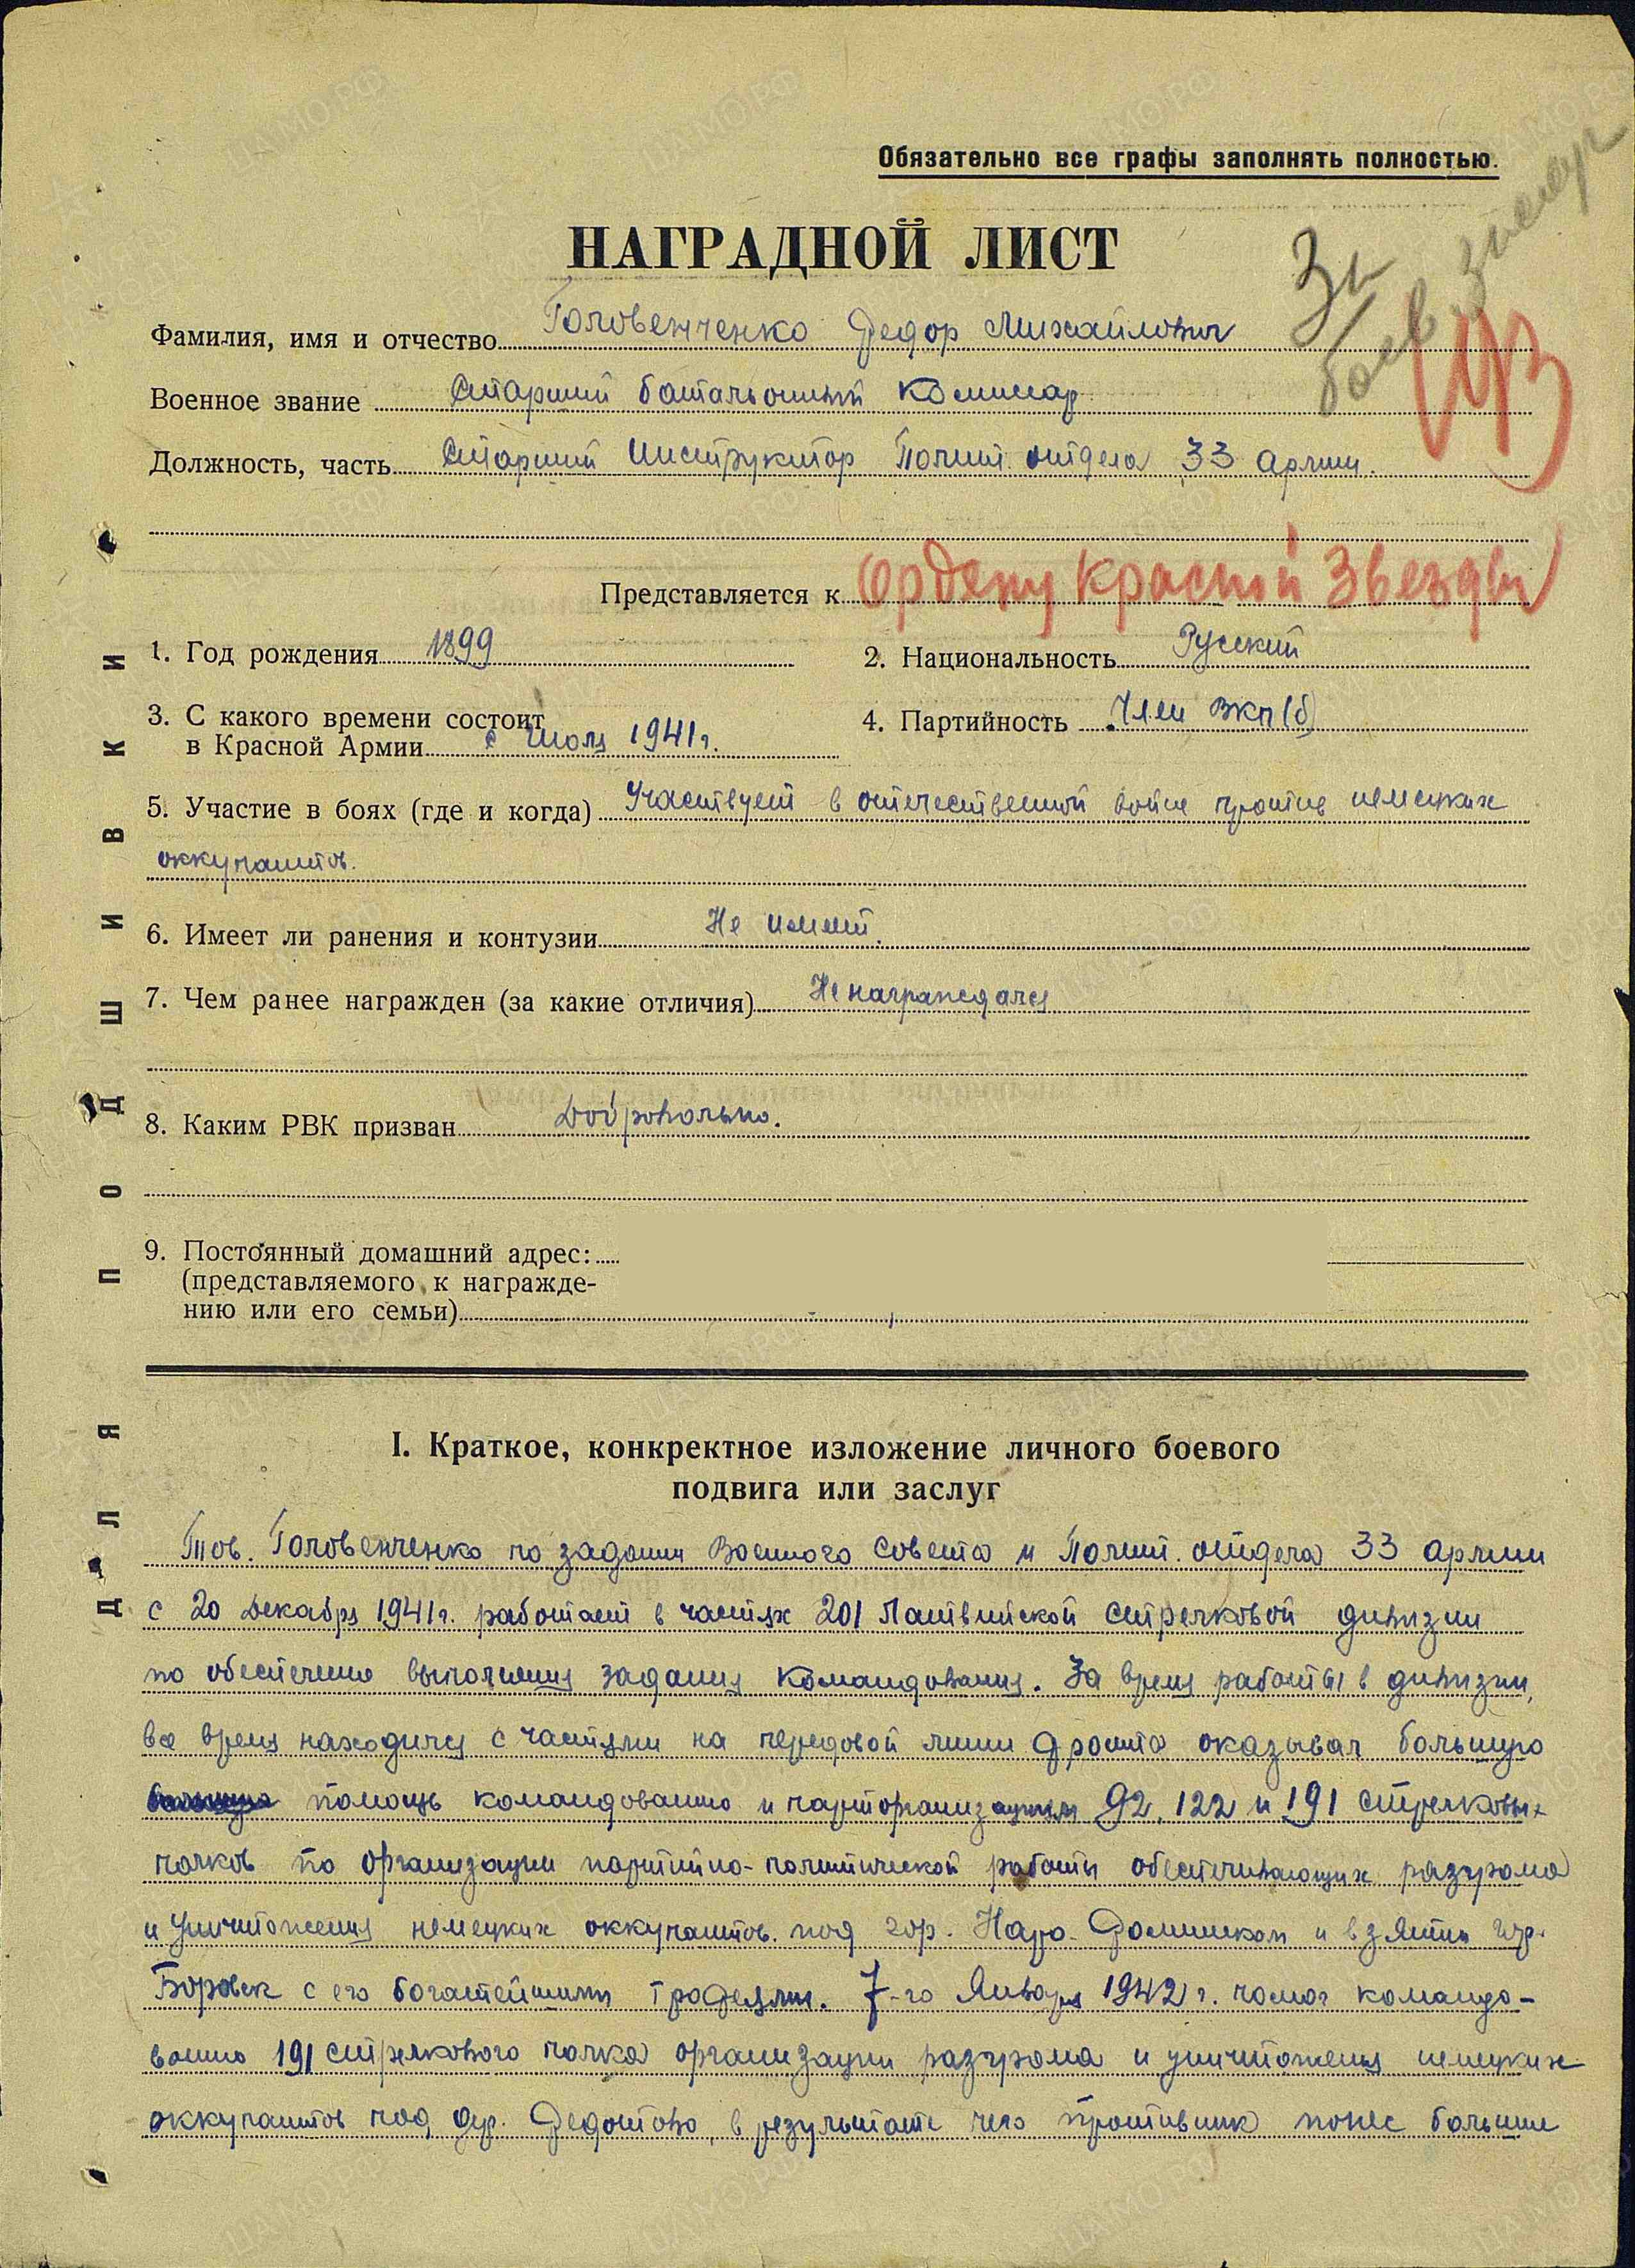 Обязательно все графы заполнять полностью.
НАГРАДНОЙ ЛИСТ
За
боев. заслуг
Фамилия, имя и отчество Головенченко Федор Михайлович
Военное звание Старший батальонный Комиссар
Должность, часть Старший Инструктор Полит. отдела 33 Армии.
Представляется к Ордену Красной Звезды
1. Год рождения 1899
2. Национальность Русский
3. С какого времени состоит
в Красной Армии с Июля 1941 г.
4. Партийность Член ВКП(б)
5. Участие в боях (где и когда) Участвует в отечественной войне против немецких
оккупантов.
6. Имеет ли ранения и контузии Не имеет.
7. Чем ранее награжден (за какие отличия) Не награждался
8. Каким РВК призван Добровольно.
9. Постоянный домашний адрес:
(представляемого к награжде-
нию или его семьи)
ДЛЯ ПОДШИВКИ
I. Краткое, конкректное изложение личного боевого
подвига или заслуг
Тов. Головенченко по задании Военного Совета и Полит. отдела 33 армии
с 20 Декабря 1941 г. работает в частях 201 Латвийской стрелковой дивизии
по обеспечению выполнения задания Командования. За время работы в дивизии,
все время находился с частями на передовой линии фронта оказывал большую
помощь командованию и парторганизациям 92, 122 и 191 стрелковых
полков по организации партийно-политической работы обеспечивающих разгрома
и уничтожения немецких оккупантов. под гор. Наро-Фоминском и взятии гор.
Боровск с его богатейшими трофеями. 7-го Января 1942 г. помог командо-
ванию 191 стрелкового полка организации разгрома и уничтожения немецких
оккупантов под дер. Федотово, в результате чего противник понес большие